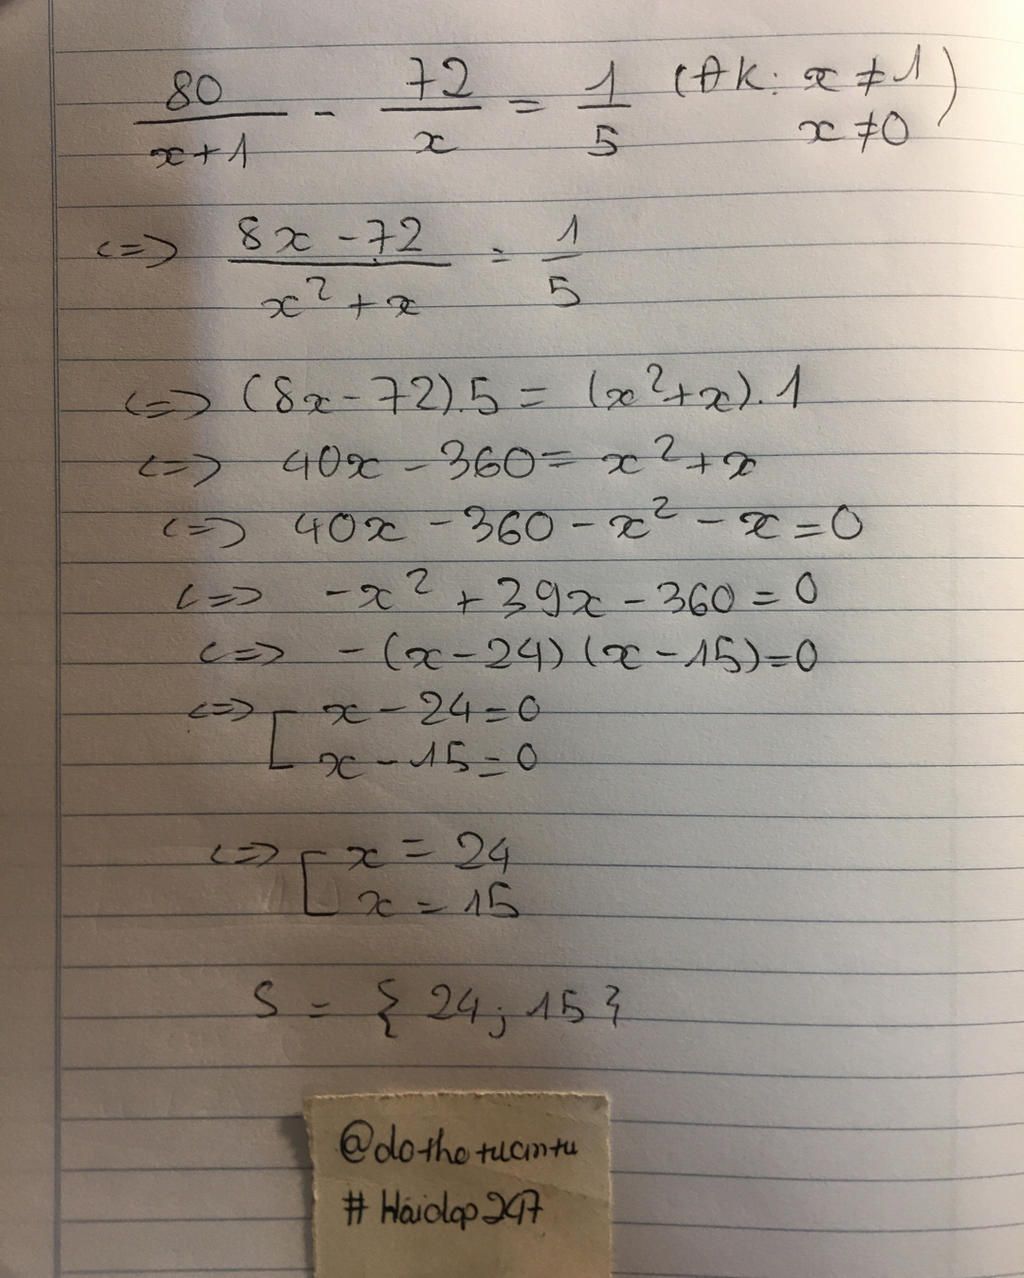 80/(x+1) - 72/x = 1/5 (ĐK: x ≠ 1
x ≠ 0)
<=> (8x - 72)/(x² + x) = 1/5
<=> (8x - 72).5 = (x² + x).1
<=> 40x - 360 = x² + x
<=> 40x - 360 - x² - x = 0
<=> -x² + 39x - 360 = 0
<=> -(x - 24)(x - 15) = 0
<=> [ x - 24 = 0
x - 15 = 0
<=> [ x = 24
x = 15
S = { 24; 15 }
@dothetuantu
#Hoidap247